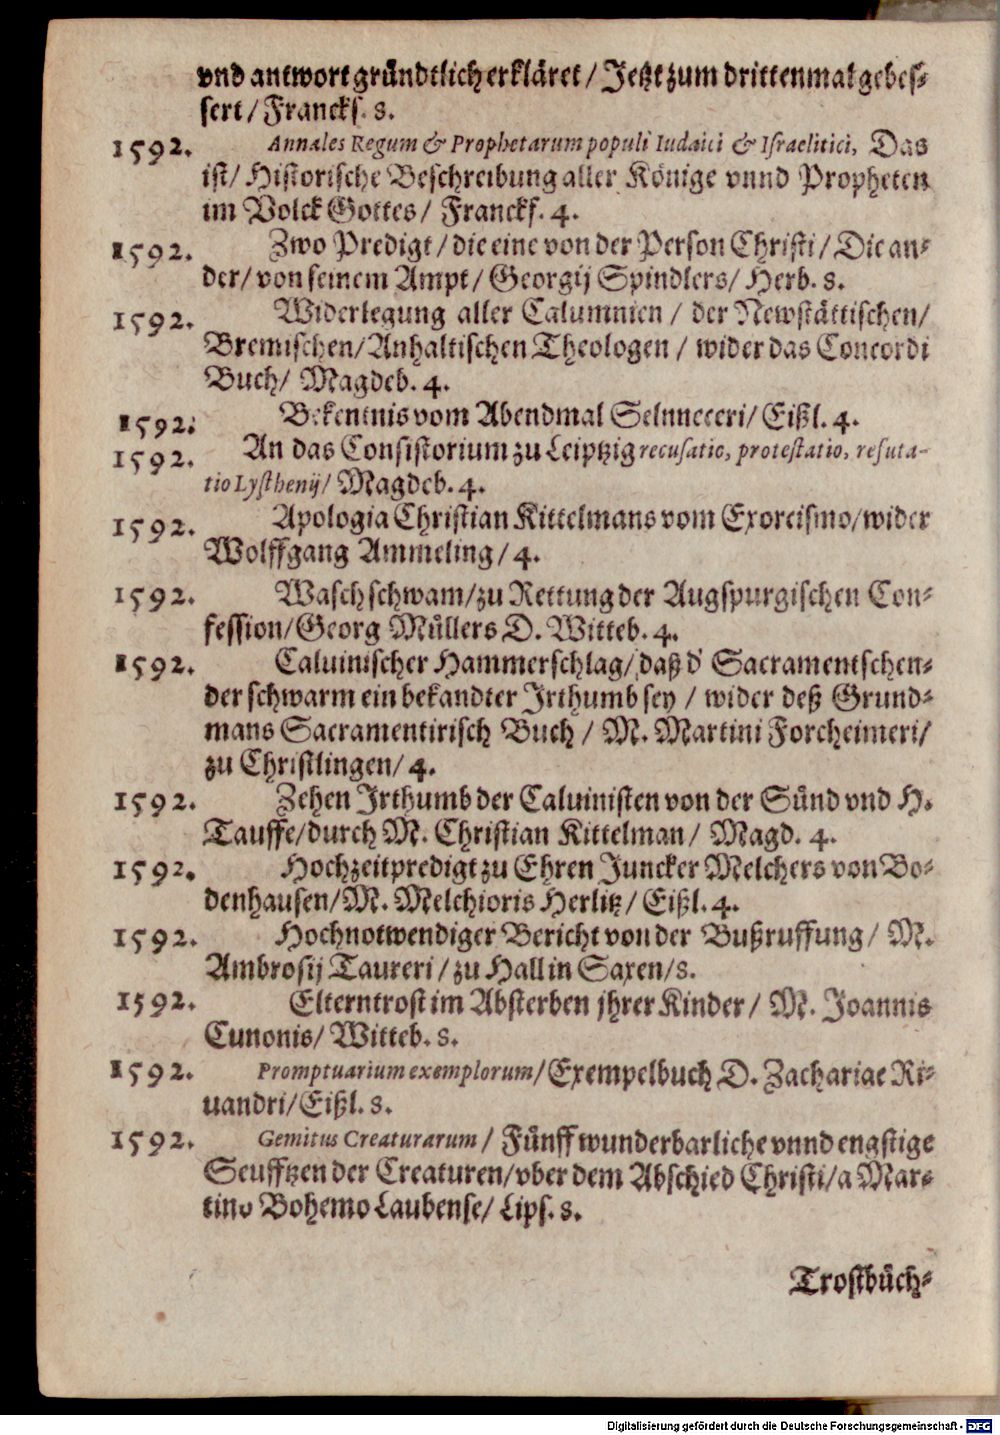 vnd antwort gründtlich erkläret / Jetzt zum drittenmal gebes⸗
sert / Franckf. 8.
1592. Annales Regum & Prophetarum populi Iudaici & Israelitici, Das
ist / Historische Beschreibung aller Könige vnnd Propheten
im Volck Gottes / Franckf. 4.
1592. Zwo Predigt / die eine von der Person Christi / Die an⸗
der / von seinem Ampt / Georgij Spindlers / Herb. 8.
1592. Widerlegung aller Calumnien / der Newstättischen /
Bremischen / Anhaltischen Theologen / wider das Concordi
Buch / Magdeb. 4.
1592. Bekentnis vom Abendmal Selnneceri / Eißl. 4.
1592. An das Consistorium zu Leiptzig recusatio, protestatio, refuta-
tio Lysthenij / Magdeb. 4.
1592. Apologia Christian Kittelmans vom Exorcismo / wider
Wolffgang Ammeling / 4.
1592. Waschschwam / zu Rettung der Augspurgischen Con⸗
fession / Georg Müllers D. Witteb. 4.
1592. Caluinischer Hammerschlag / daß d' Sacramentschen⸗
der schwarm ein bekandter Irthumb sey / wider deß Grund⸗
mans Sacramentirisch Buch / M. Martini Forcheimeri /
zu Christlingen / 4.
1592. Zehen Irthumb der Caluinisten von der Sünd vnd H.
Tauffe / durch M. Christian Kittelman / Magd. 4.
1592. Hochzeitpredigt zu Ehren Juncker Melchers von Bo⸗
denhausen / M. Melchioris Herlitz / Eißl. 4.
1592. Hochnotwendiger Bericht von der Bußruffung / M.
Ambrosij Taureri / zu Hall in Saxen / 8.
1592. Elterntrost im Absterben jhrer Kinder / M. Joannis
Cunonis / Witteb. 8.
1592. Promptuarium exemplorum / Exempelbuch D. Zachariae Ri⸗
uandri / Eißl. 8.
1592. Gemitus Creaturarum / Fünff wunderbarliche vnnd engstige
Seufftzen der Creaturen / vber dem Abschied Christi / a Mar⸗
tino Bohemo Laubense / Lips. 8.
Trostbüch⸗
Digitalisierung gefördert durch die Deutsche Forschungsgemeinschaft - DFG